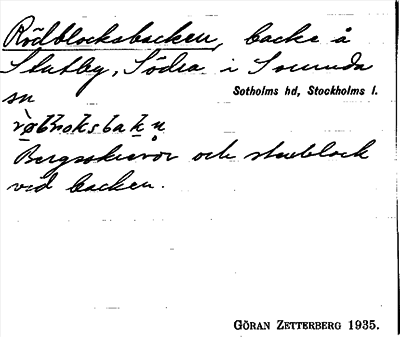 Rödblocksbacken, backe å
Slutby, Södra i Sorunda
sn
Sotholms hd, Stockholms l.
Bergsskrevor och stenblock
vid backen.
GÖRAN ZETTERBERG 1935.